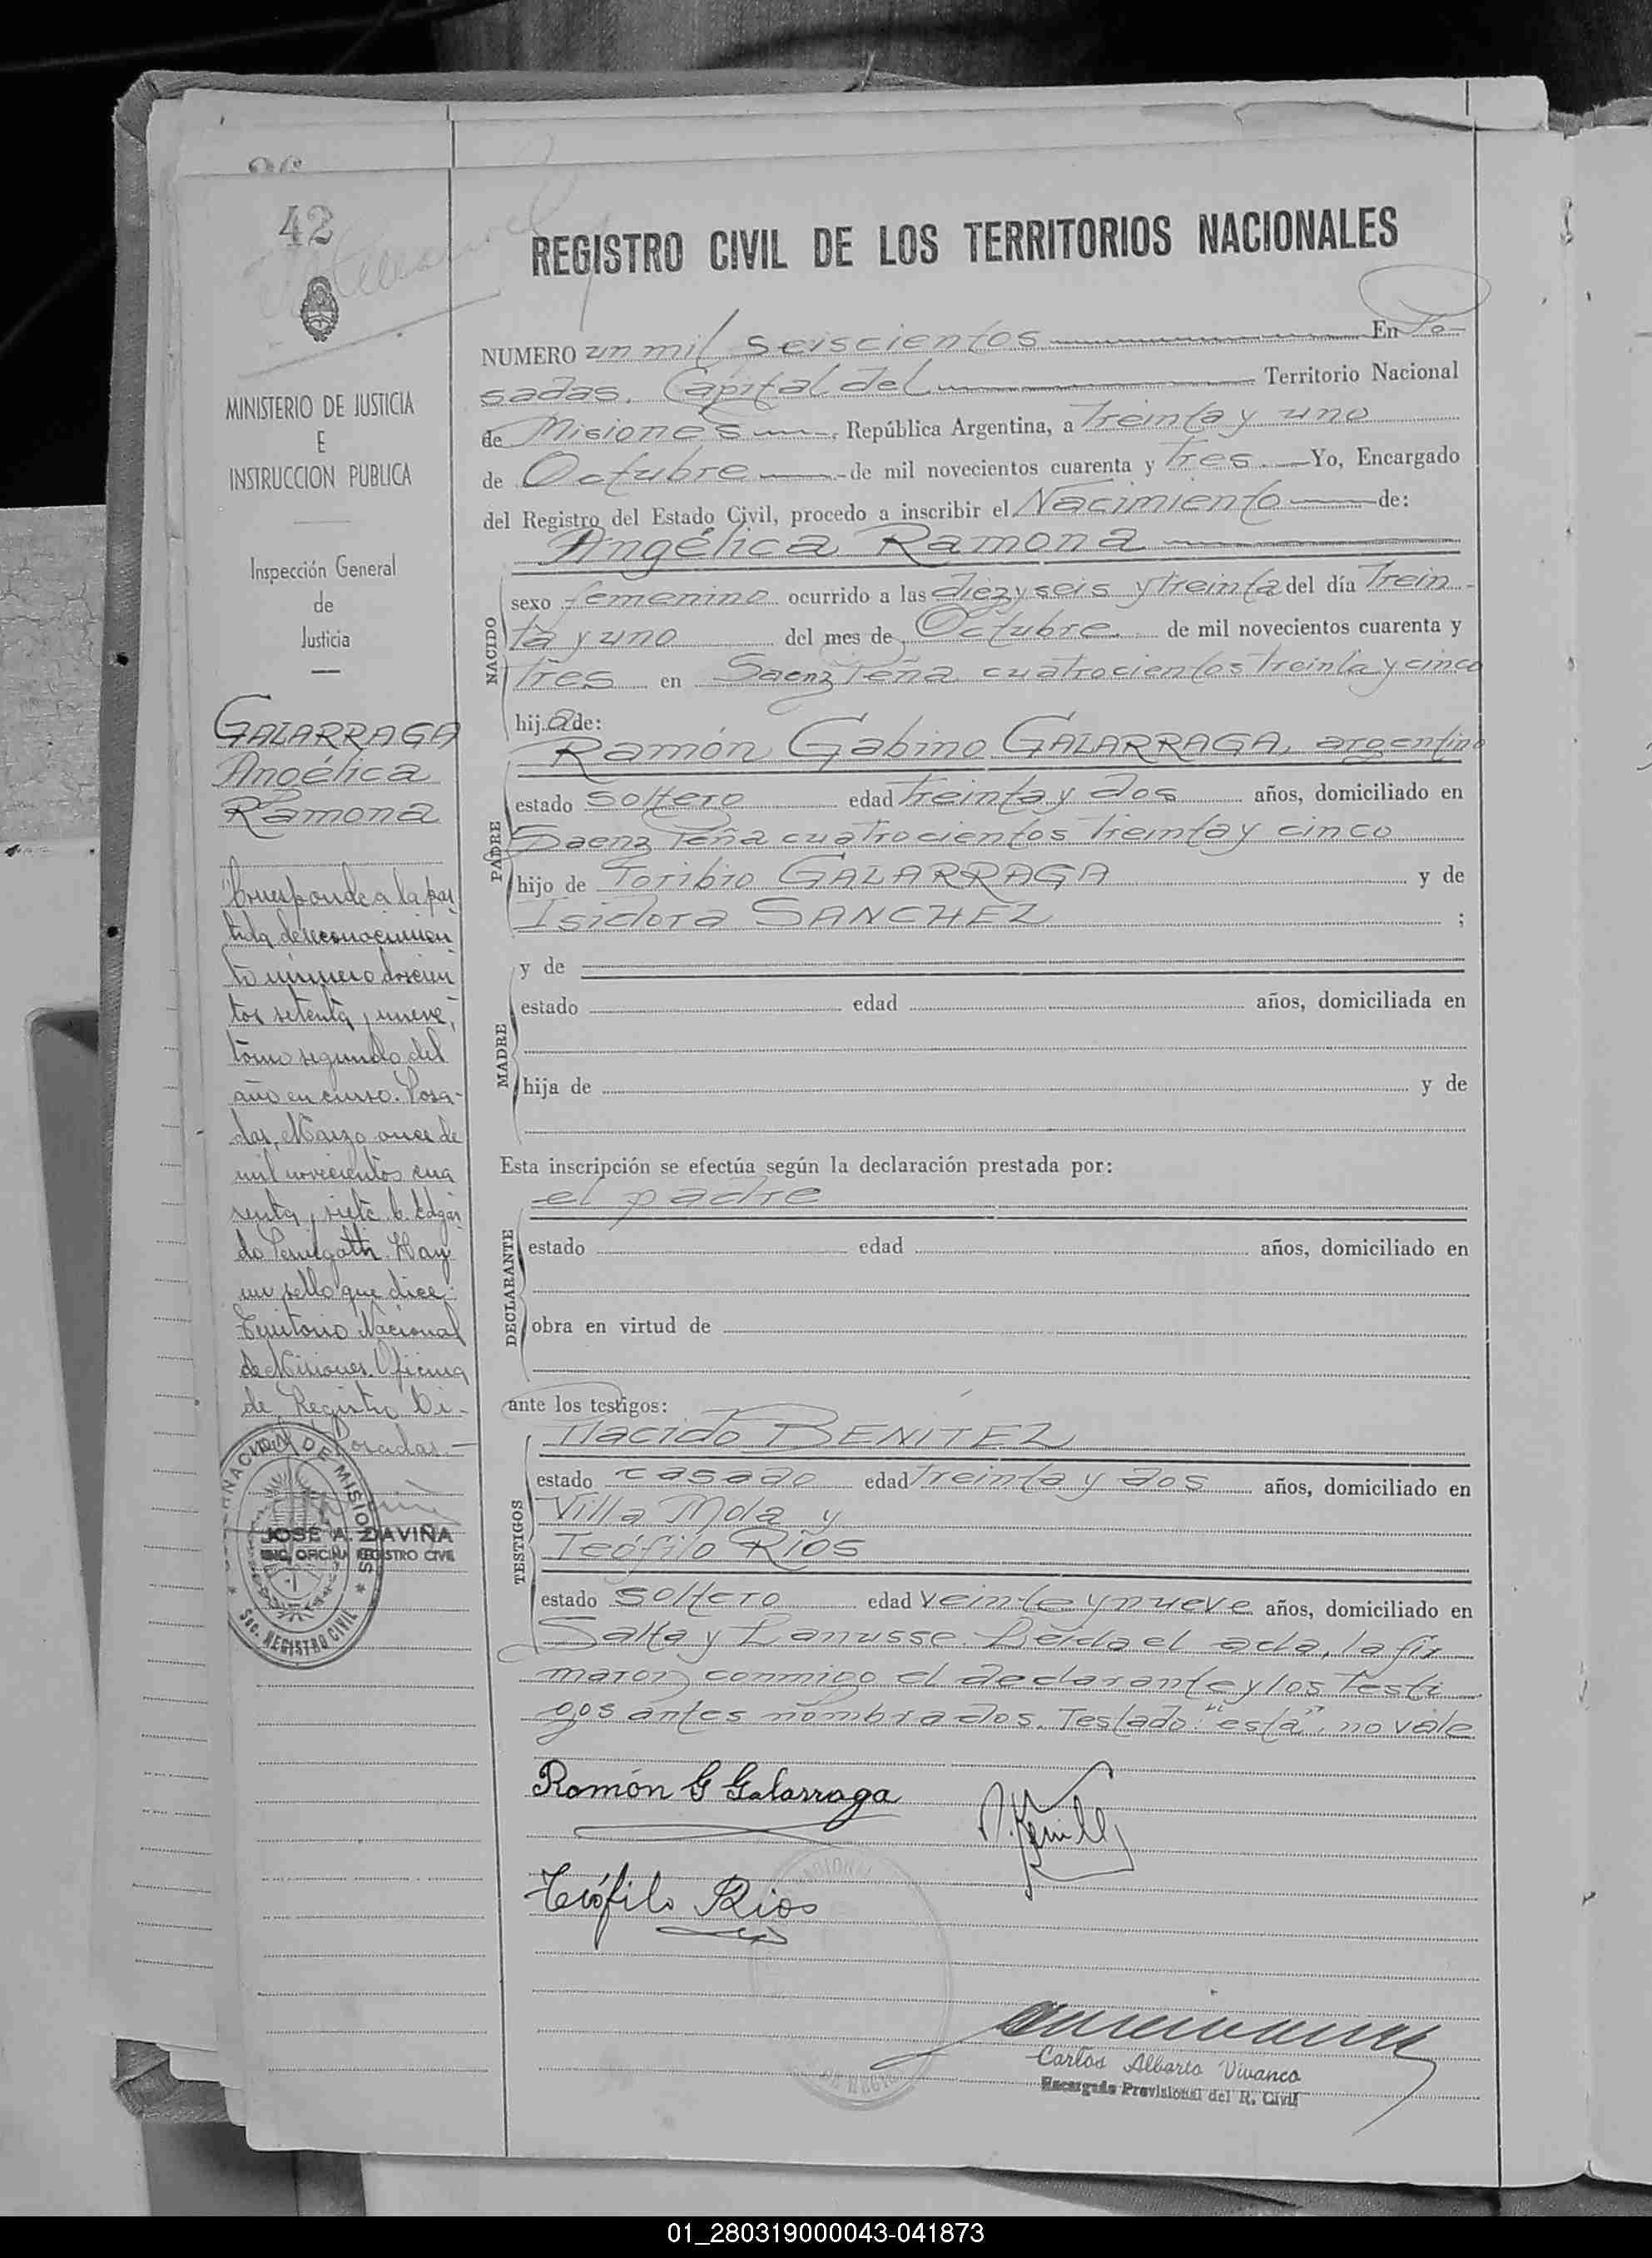 42
MINISTERIO DE JUSTICIA
E
INSTRUCCION PUBLICA
Inspección General
de
Justicia
GALARRAGA
Angélica
Ramona
Corresponde a la par
tida de reconocimien
to número doscien
tos setenta y nueve,
tomo segundo del
año en curso. Posa-
das, Marzo once de
mil novecientos cua
renta y siete. Edgar
do Hay
un sello que dice:
Territorio Nacional
de Misiones. Oficina
de Registro Ci-
Posadas.—
GOBERNACION DE MISIONES
Sec. REGISTRO CIVIL
JOSE A. DAVIÑA
ENC. OFICINA REGISTRO CIVIL
REGISTRO CIVIL DE LOS TERRITORIOS NACIONALES
NUMERO un mil seiscientos En Po-
sadas, Capital del Territorio Nacional
de Misiones, República Argentina, a Treinta y uno
de Octubre de mil novecientos cuarenta y Tres. Yo, Encargado
del Registro del Estado Civil, procedo a inscribir el Nacimiento de:
Angélica Ramona
NACIDO
sexo femenino ocurrido a las diez y seis y treinta del día Trein-
ta y uno del mes de Octubre de mil novecientos cuarenta y
Tres en Saenz Peña cuatrocientos Treinta y cinco
hija de:
Ramón Gabino GALARRAGA, argentino
PADRE
estado soltero edad Treinta y dos años, domiciliado en
Saenz Peña cuatrocientos Treinta y cinco
hijo de Toribio GALARRAGA y de
Isidora SANCHEZ ;
MADRE
y de
estado edad años, domiciliada en
hija de y de
Esta inscripción se efectúa según la declaración prestada por:
el padre
DECLARANTE
estado edad años, domiciliado en
obra en virtud de
ante los testigos:
Placido BENITEZ
TESTIGOS
estado casado edad Treinta y dos años, domiciliado en
Villa Mola y
Teófilo Ríos
estado soltero edad veinte y nueve años, domiciliado en
Salta y Lanusse. Leída el acta, la fir
maron conmigo el declarante y los Testi
gos antes nombrados. Testado: "esta", no vale
Ramón G Galarraga
Teófilo Rios
Carlos Alberto Vivanco
Encargado Provisional del R. Civil
01_280319000043-041873